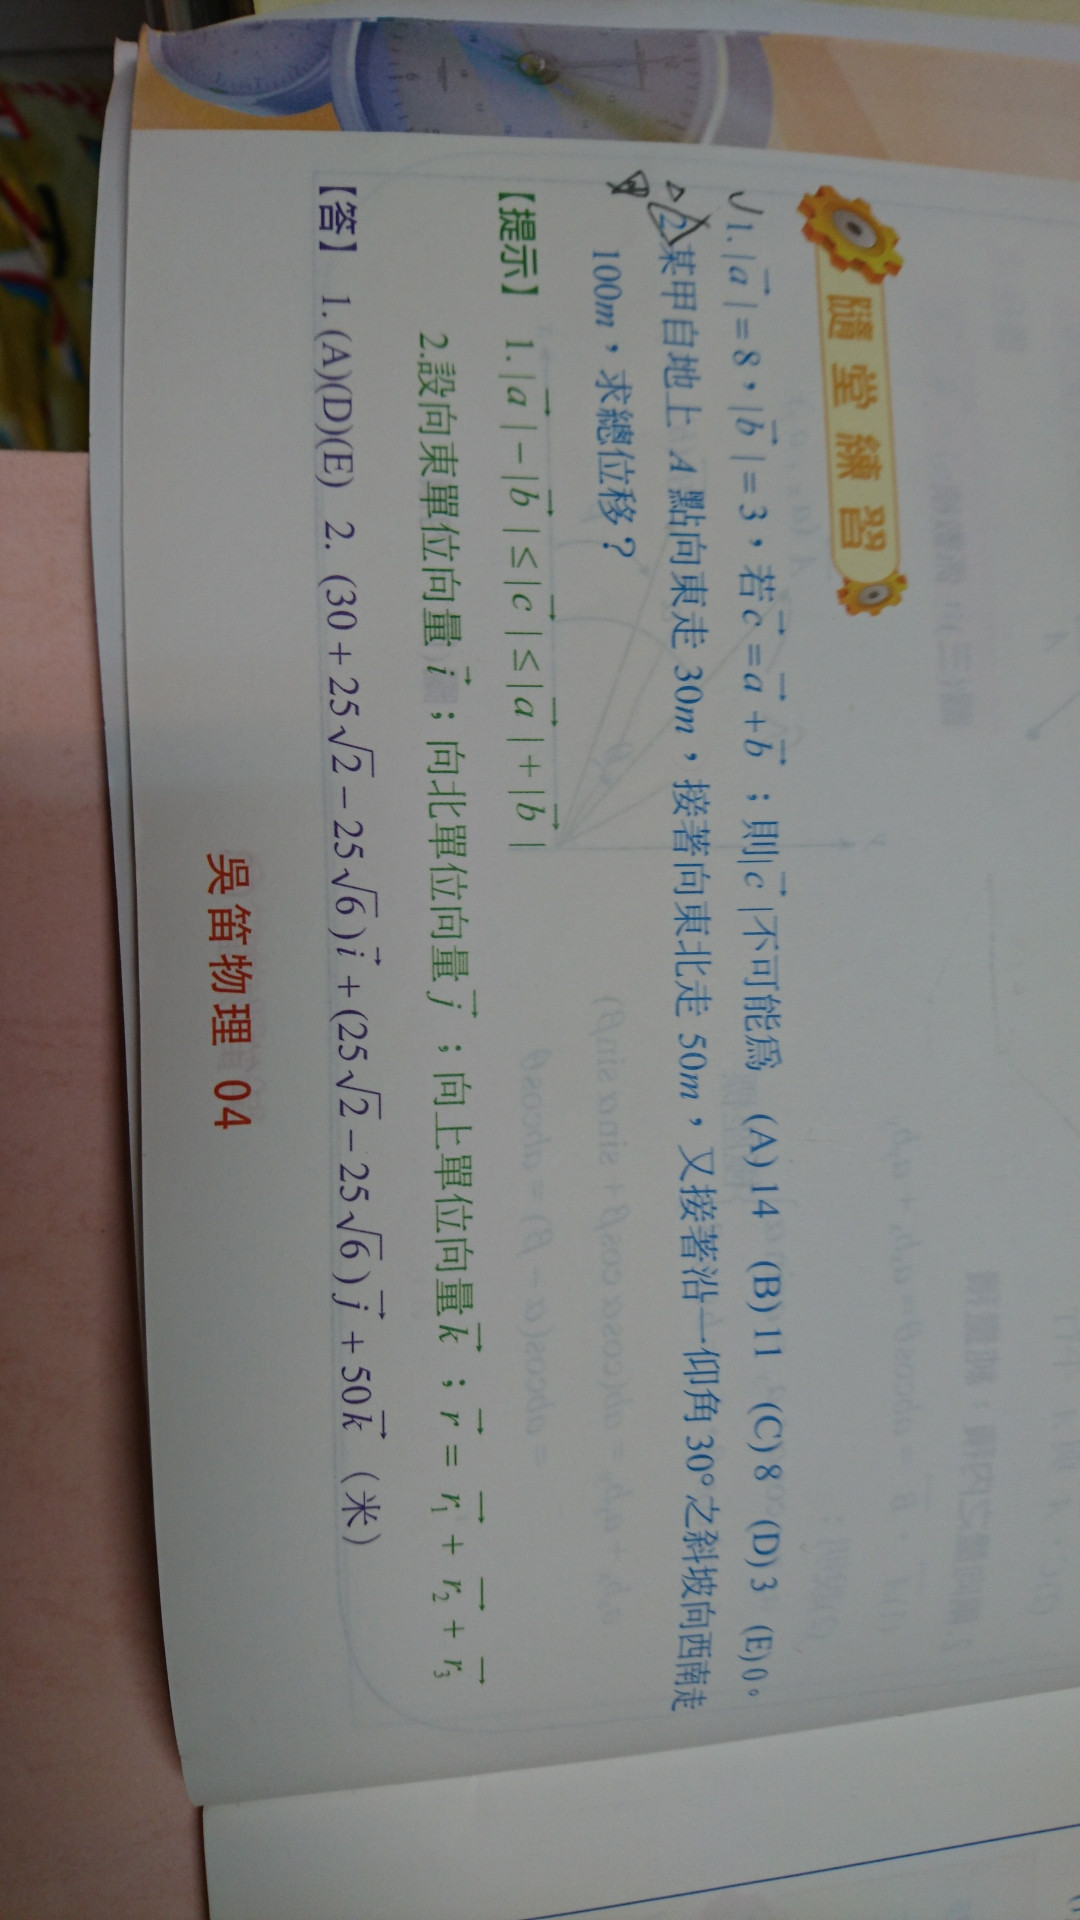 隨堂練習
1. |a⃗| = 8，|b⃗| = 3，若 c⃗ = a⃗ + b⃗；則|c⃗|不可能為 (A) 14 (B) 11 (C) 8 (D) 3 (E) 0。
2. 某甲自地上 A 點向東走 30m，接著向東北走 50m，又接著沿一仰角 30° 之斜坡向西南走
100m，求總位移？
【提示】 1. |a⃗| − |b⃗| ≤ |c⃗| ≤ |a⃗| + |b⃗|
2.設向東單位向量 i⃗；向北單位向量 j⃗；向上單位向量 k⃗；r⃗ = r⃗₁ + r⃗₂ + r⃗₃
【答】 1. (A)(D)(E) 2. (30 + 25√2 − 25√6) i⃗ + (25√2 − 25√6) j⃗ + 50k⃗（米）
吳笛物理 04